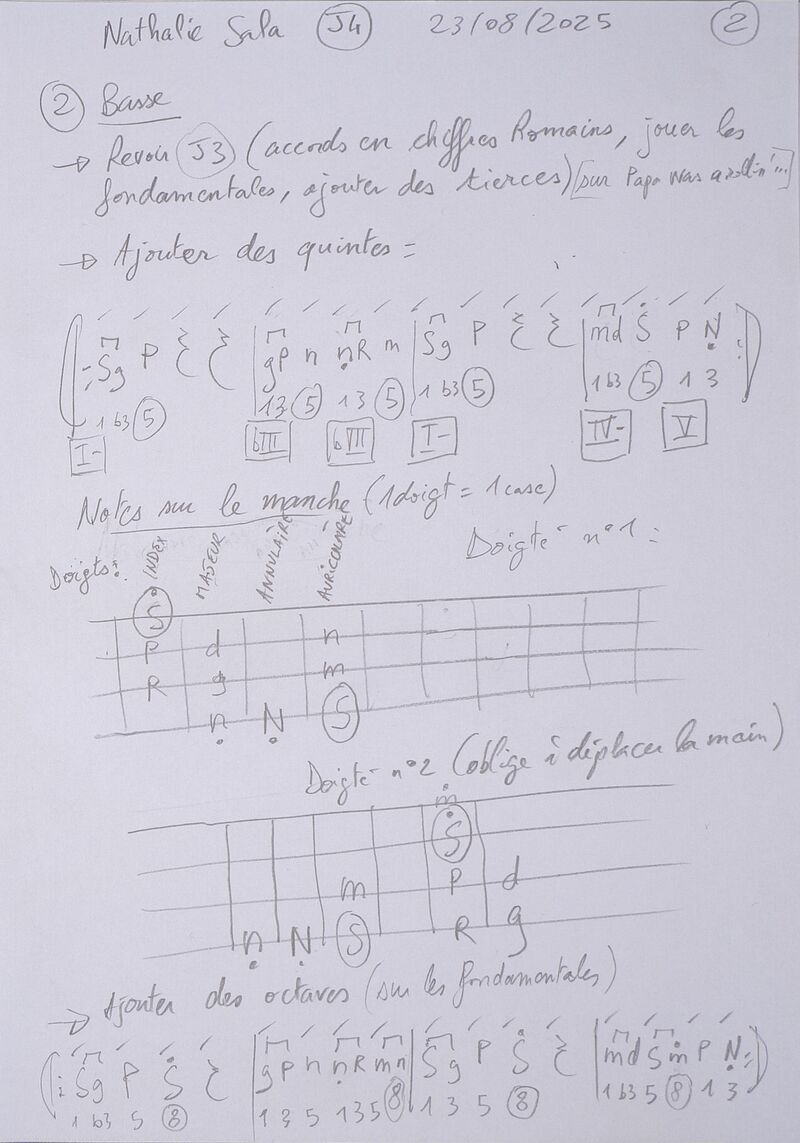 Nathalie Sala J4 23/08/2025 2
2 Basse
→ Revoir J3 (accords en chiffres Romains, jouer les
fondamentales, ajouter des tierces) [sur Papa was a rollin'...]
→ Ajouter des quintes =
Sg P gP n nR m Sg P md S P N
1 b3 5 1 3 5 1 3 5 1 b3 5 1 b3 5 1 3
I- bIII bVII I- IV- V
Notes sur le manche (1 doigt = 1 case)
Doigté n°1 =
Doigts: INDEX MAJEUR ANNULAIRE AURICULAIRE
S
P d n
R g m
n N S
Doigté n°2 (oblige à déplacer la main)
m
S
m P d
n N S R g
→ Ajouter des octaves (sur les fondamentales)
Sg P S gP n nR mn Sg P S md Sm P N
1 b3 5 8 1 3 5 1 3 5 8 1 3 5 8 1 b3 5 8 1 3